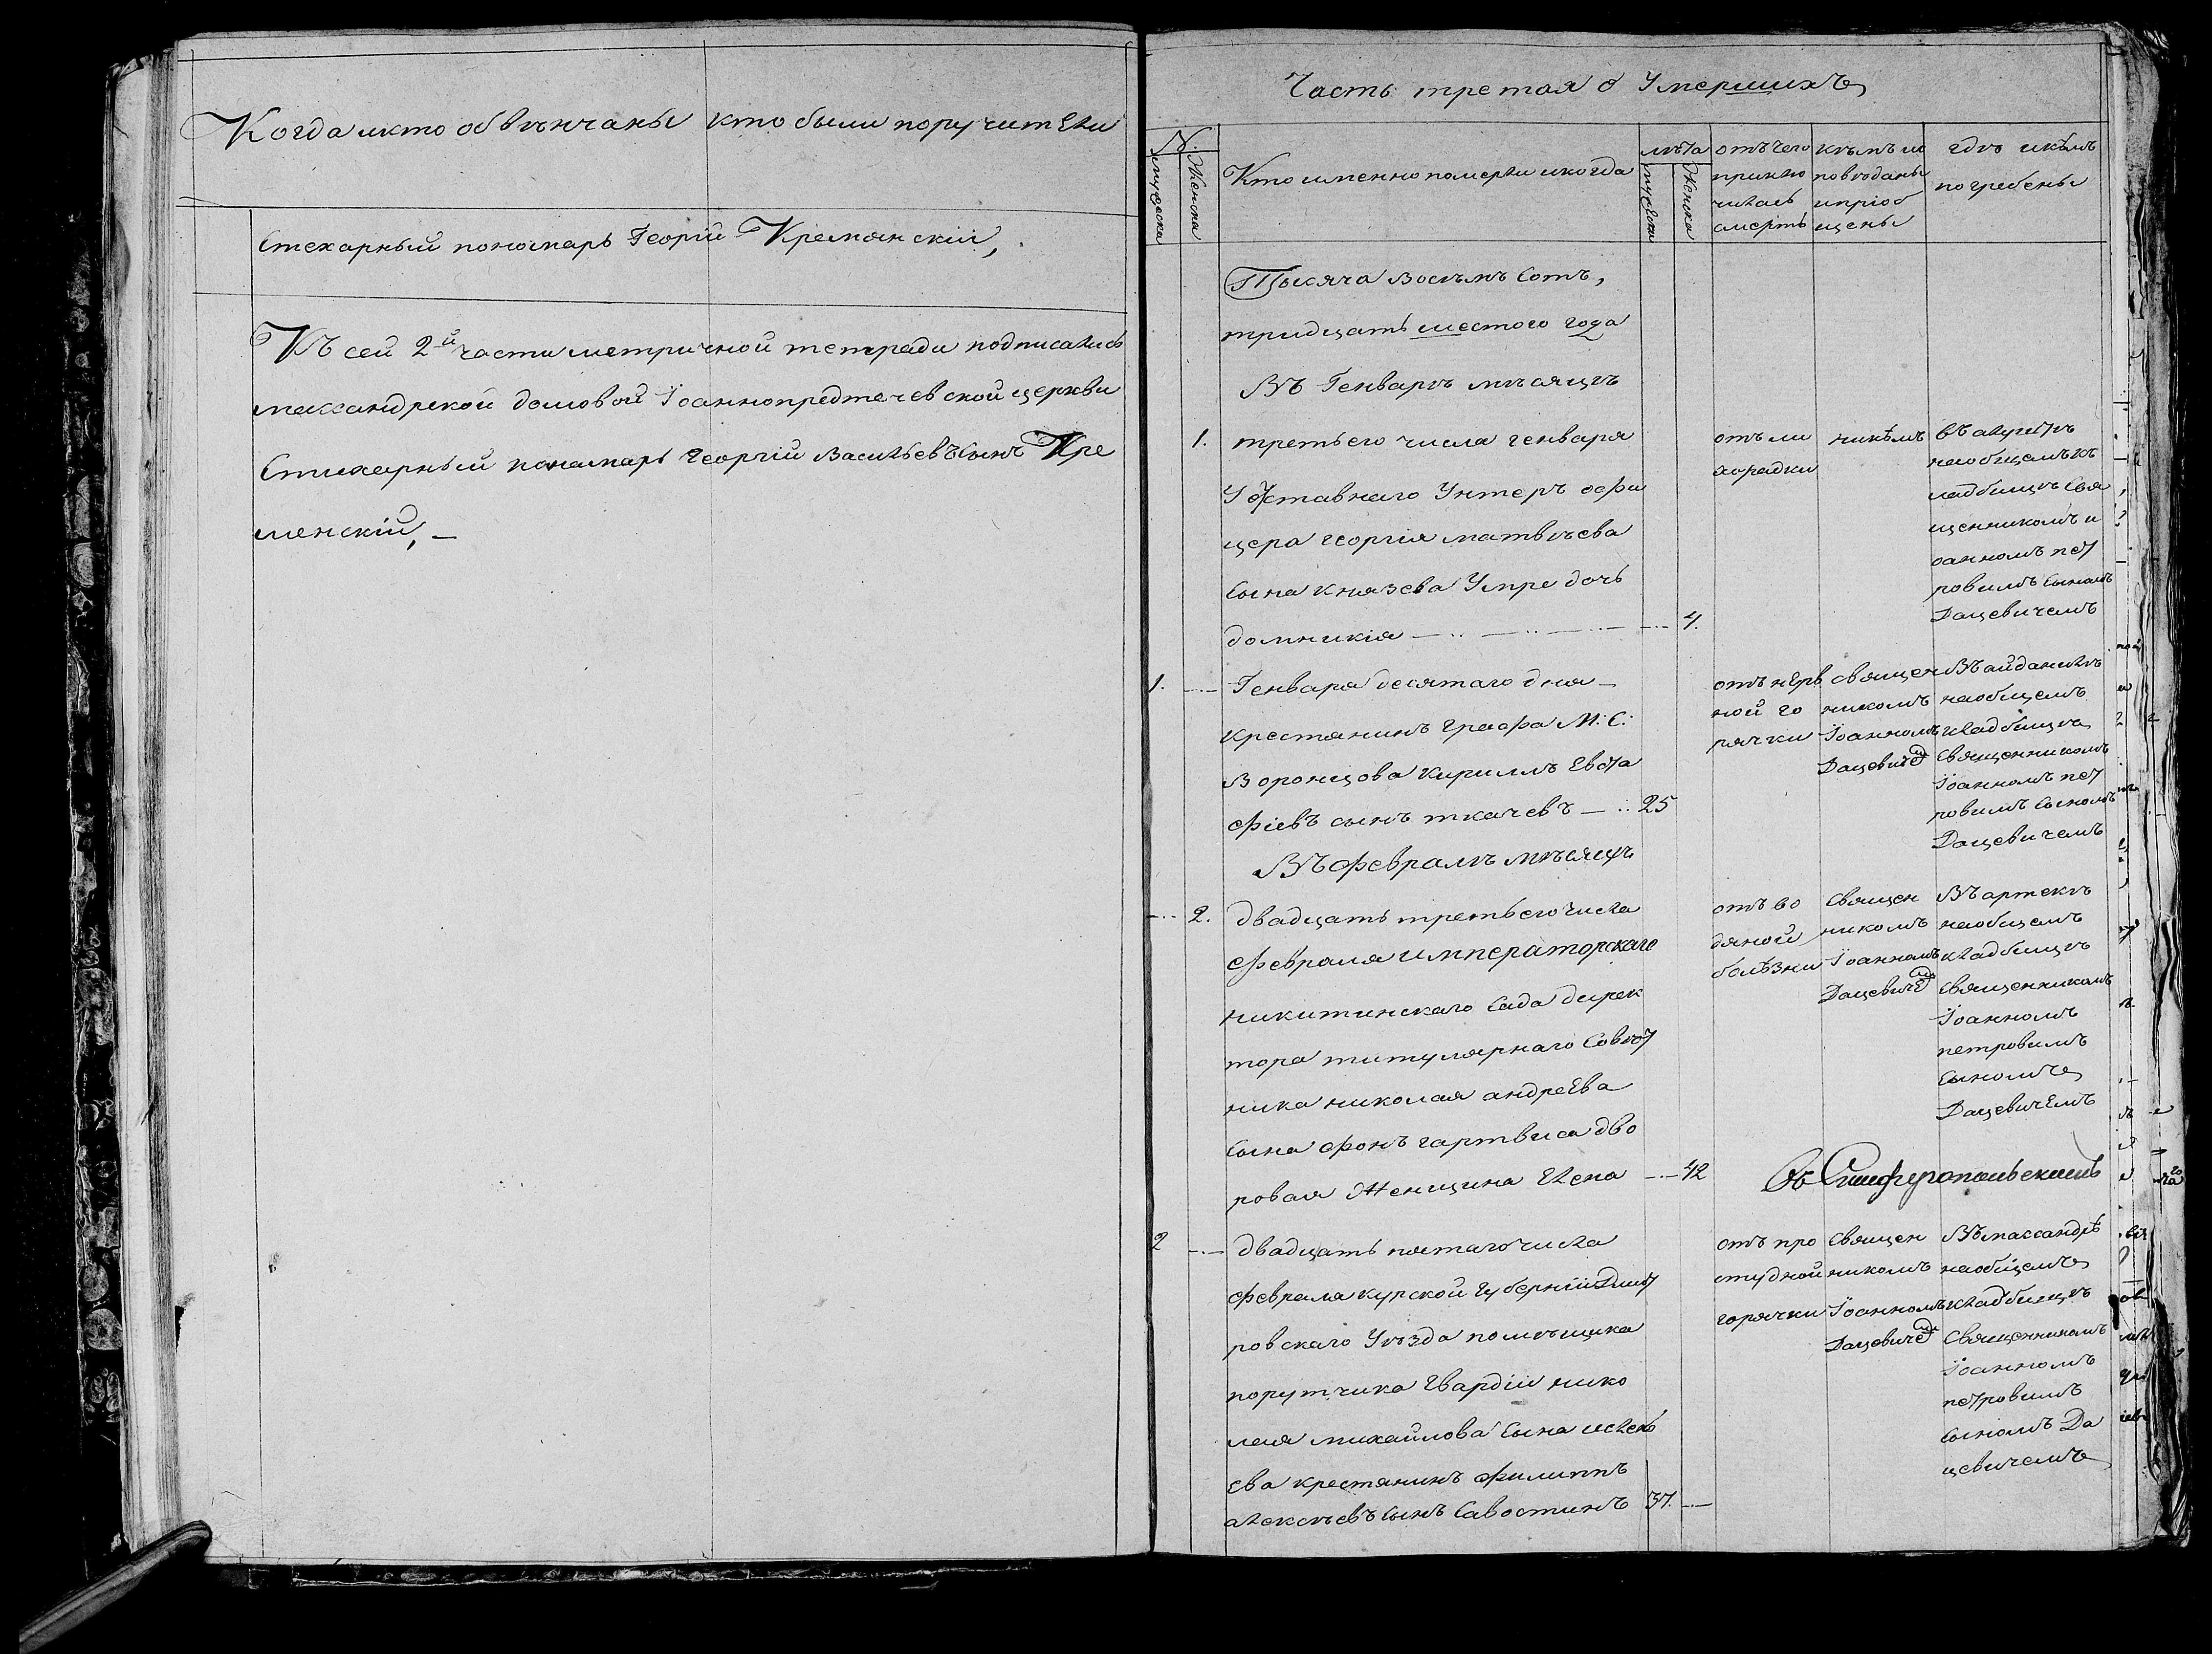 Когда икто обвѣнчаны кто были поручитЕли
Стехарный пономарь Георгій Кремянскій,
Къ сей 2й части метричной тетради подписались
массандрской домовой Іоаннопредтечевской церкви
Стихарный пономарь георгій Васильевъ Сынъ Кре
менскій, —
Часть третая о Умершихъ
N.
мужеска
Женска
Кто именно померли икогда
лѣта
мужеска
Женска
отъ чего
приклю
чилась
смерть
кѣмъ ис
повѣданы
иприоб
щены
гдѣ икѣмъ
погребены
Тысяча восѣмъ Сотъ,
тридцать шестого года
Въ Генварѣ мѣсяцѣ
1. третьего числа генваря
У Отставнаго Унтеръ офи
цера георгія матвѣева
Сына Князева Умре дочь
домникія 4.
отъ ли
хорадки
никѣмъ
въ алупкѣ
наобщемъ к
ладбищѣ Свя
щенникомъ и
оанномъ пет
ровимъ Сыномъ
Дацевичемъ
1. Генваря десятаго дня
Крестянинъ графа М: С:
Воронцова Кириллъ Евста
фіевъ сынъ ткачевъ 25
отъ нЕрв
ной го
рячки
священ
никомъ
Іоанномъ
Дацевичем
Въ айданилѣ
наобщемъ
кладбищѣ
Священникомъ
Іоанномъ пет
ровимъ Сыномъ
Дацевичемъ
Въ февралѣ мѣсяцѣ
2. двадцать третьего числа
февраля императорскаго
никитинскаго Сада дирек
тора титулярнаго Совѣт
ника николая андрЕЕва
Сына фонъ гартвиса дво
ровая Женщина Елена 42
отъ во
дяной
болѣзни
Священ
никомъ
Іоанномъ
Дацевичем
Въ артекѣ
наобщемъ
кладбищѣ
Священникомъ
Іоанномъ
петровимъ
Сыномъ
ДацевичЕмъ
Въ Симферопольскомъ
2 двадцать пятаго числа
февраля курской губерніи Дмит
ровскаго Уѣзда помѣщика
порутчика Гвардіи нико
лая михайлова Сына
Ева крестянинъ филиппъ
алексѣевъ Сынъ Савостинъ 37.
отъ про
студной
горячки
Священ
никомъ
Іоанномъ
Дацевичем
Въмассандрѣ
наобщемъ
кладбищѣ
Священникомъ
Іоанномъ
петровимъ
Сыномъ Да
цевичемъ